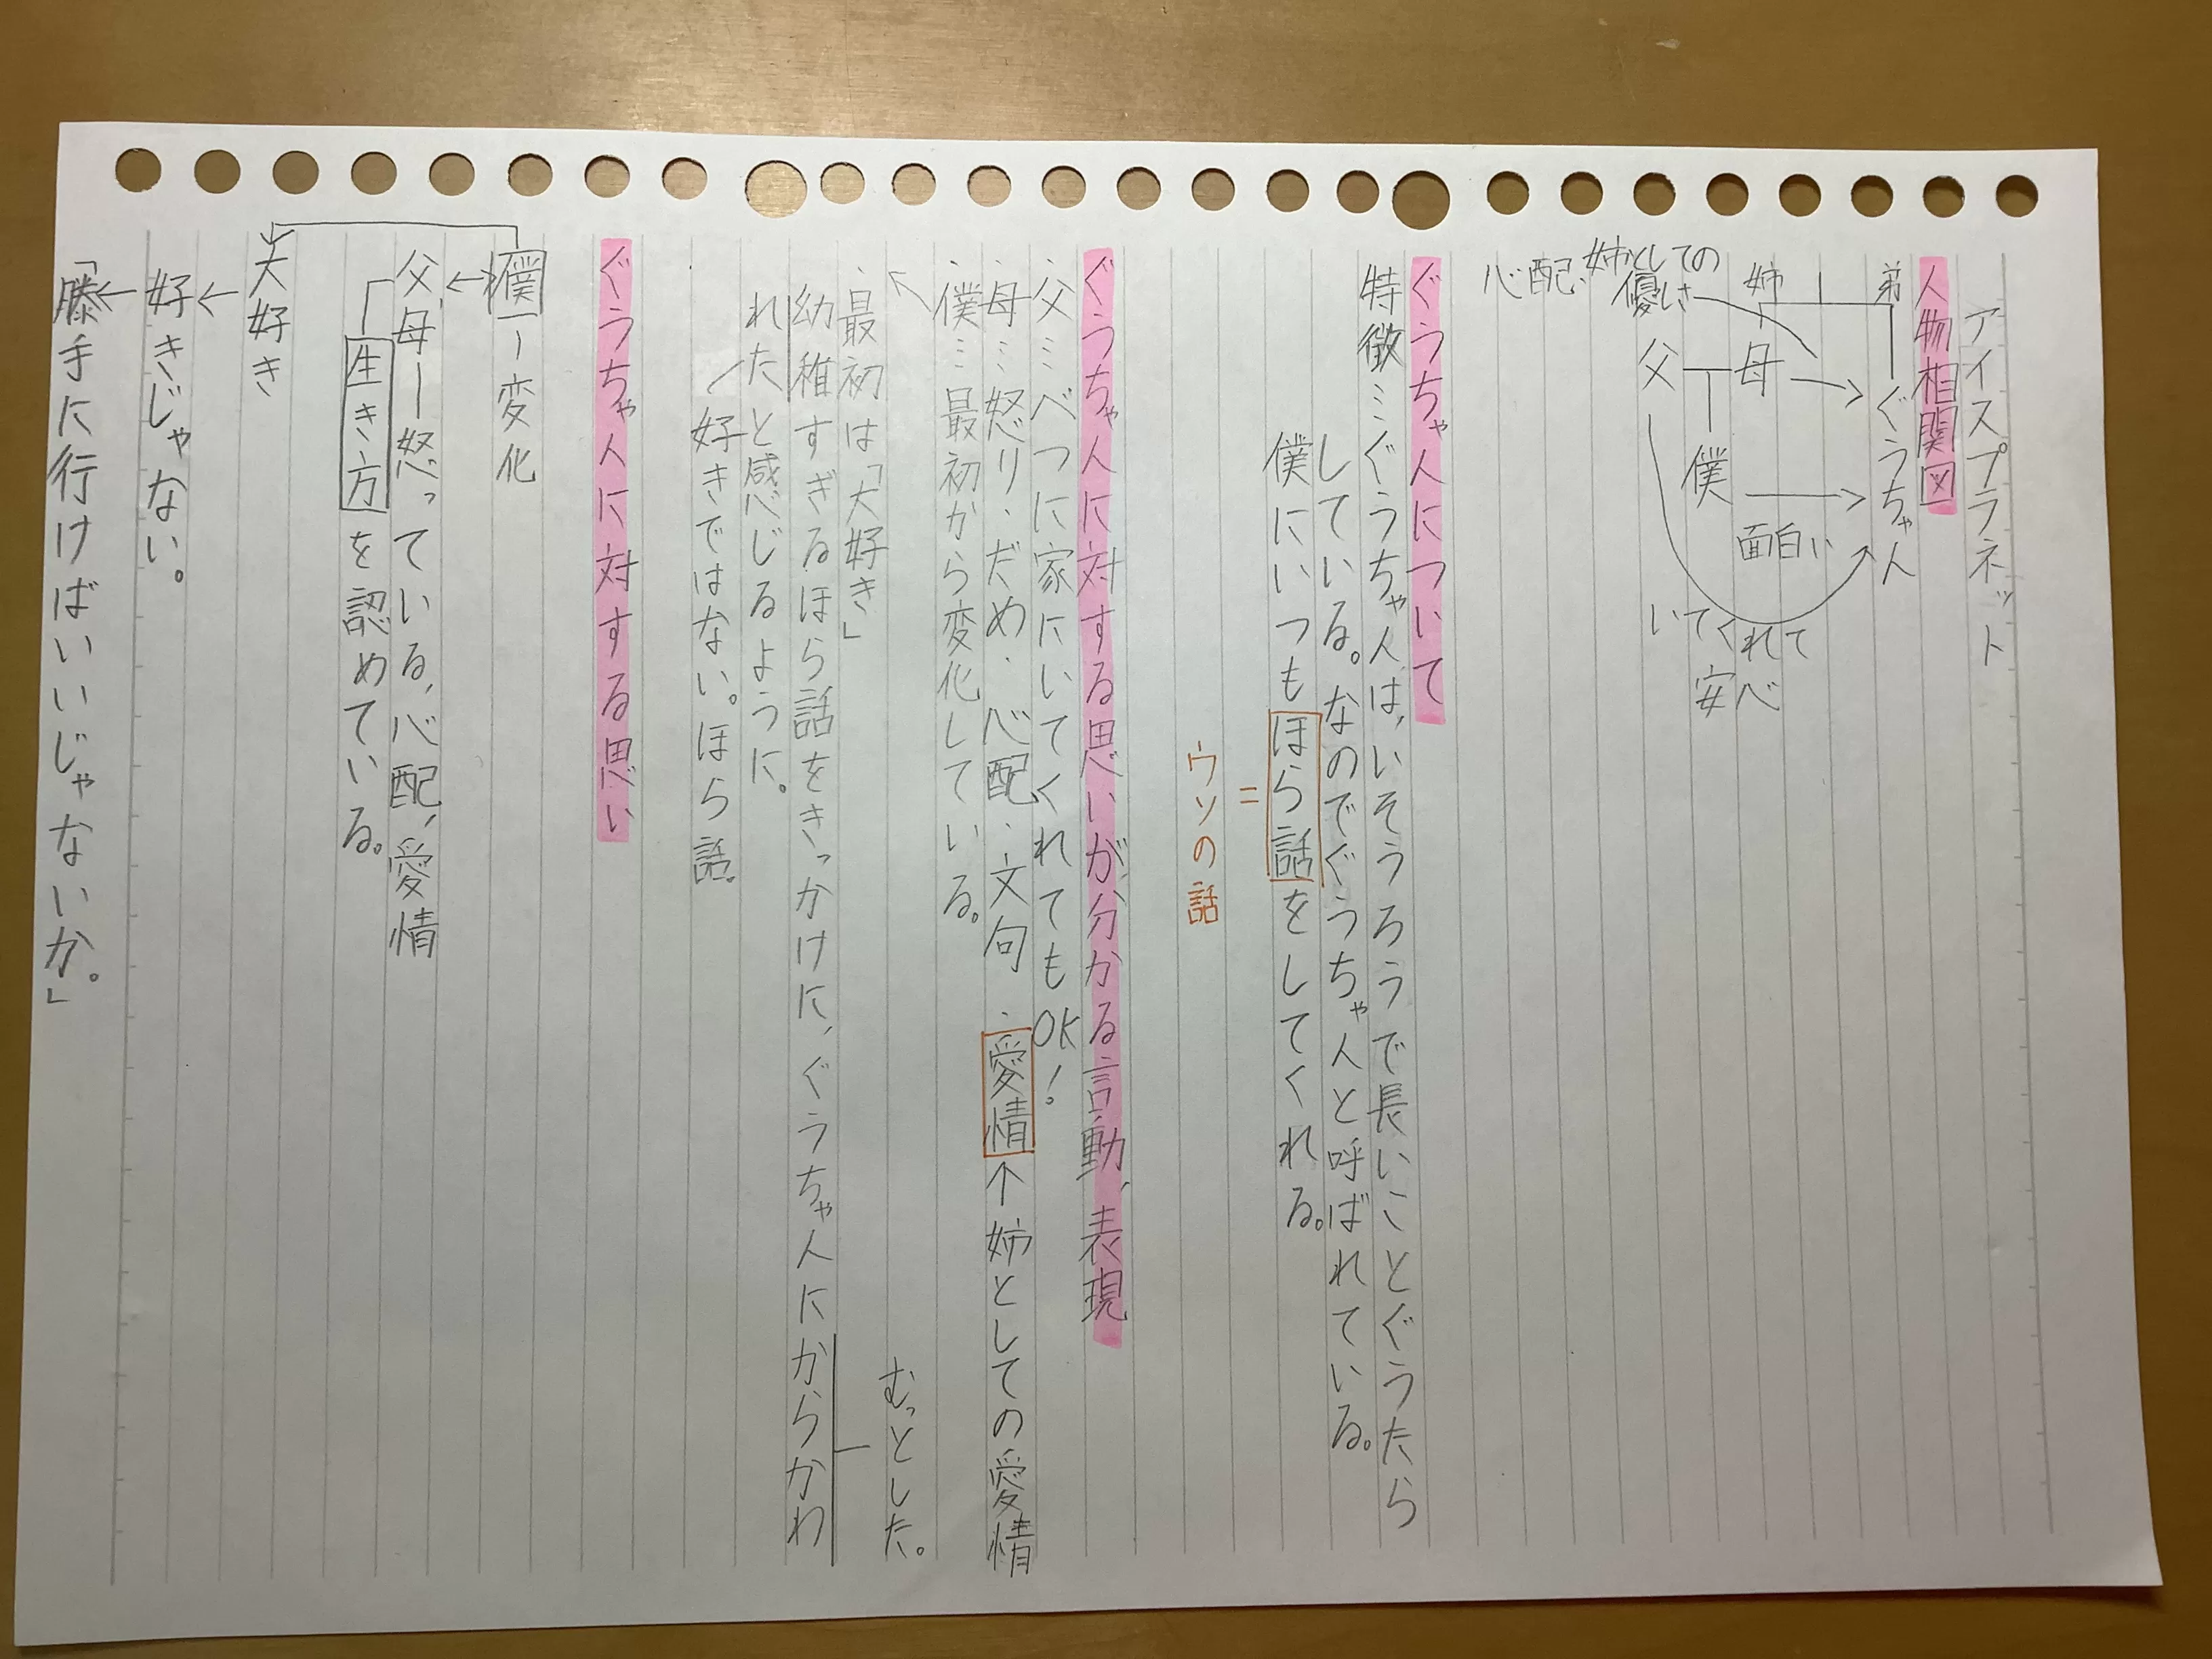 アイスプラネット
人物相関図
弟
ぐうちゃん
姉
母
僕
父
面白い
いてくれて
安心
姉としての
優しさ
心配
ぐうちゃんについて
特徴…ぐうちゃんは、いそうろうで長いことぐうたら
している。なのでぐうちゃんと呼ばれている。
僕にいつもほら話をしてくれる。
=
ウソの話
ぐうちゃんに対する思いが分かる言動、表現
・父…べつに家にいてくれてもOK!
・母…怒り・だめ・心配・文句・愛情↑姉としての愛情
・僕…最初から変化している。
むっとした。
・最初は「大好き」
幼稚すぎるほら話をきっかけに、ぐうちゃんにからかわ
れたと感じるように。
好きではない。ほら話。
ぐうちゃんに対する思い
僕ー変化
父、母ー怒っている、心配、愛情
生き方を認めている。
大好き
好きじゃない。
「勝手に行けばいいじゃないか。」